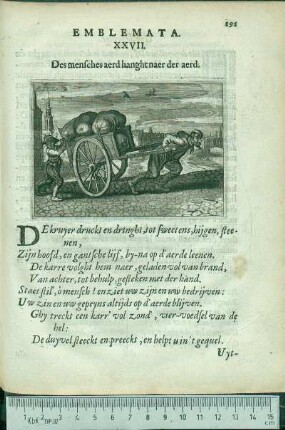 191
EMBLEMATA.
XXVII.
Des mensches aerd hanght naer der aerd.
DE kruyer druckt en dringht tot sweetens, hijgen, stee-
nen,
Zijn hoofd, en gantsche lijf, by-na op d'aerde leenen.
De karre volght hem naer, geladen vol van brand,
Van achter, tot behulp, gesteken met der hand.
Staet stil, ô mensch! en ziet uw zijn en uw bedrijven:
Uw zin en uw gepeyns altijds op d'aerde blijven.
Ghy treckt een karr' vol zond', vier-voedsel van de
hel:
De duyvel steeckt en preeckt, en helpt u in 't gequel.
Uyt-
1 2 3 4 5 6 7 8 9 10 11 12 13 14 15
cm